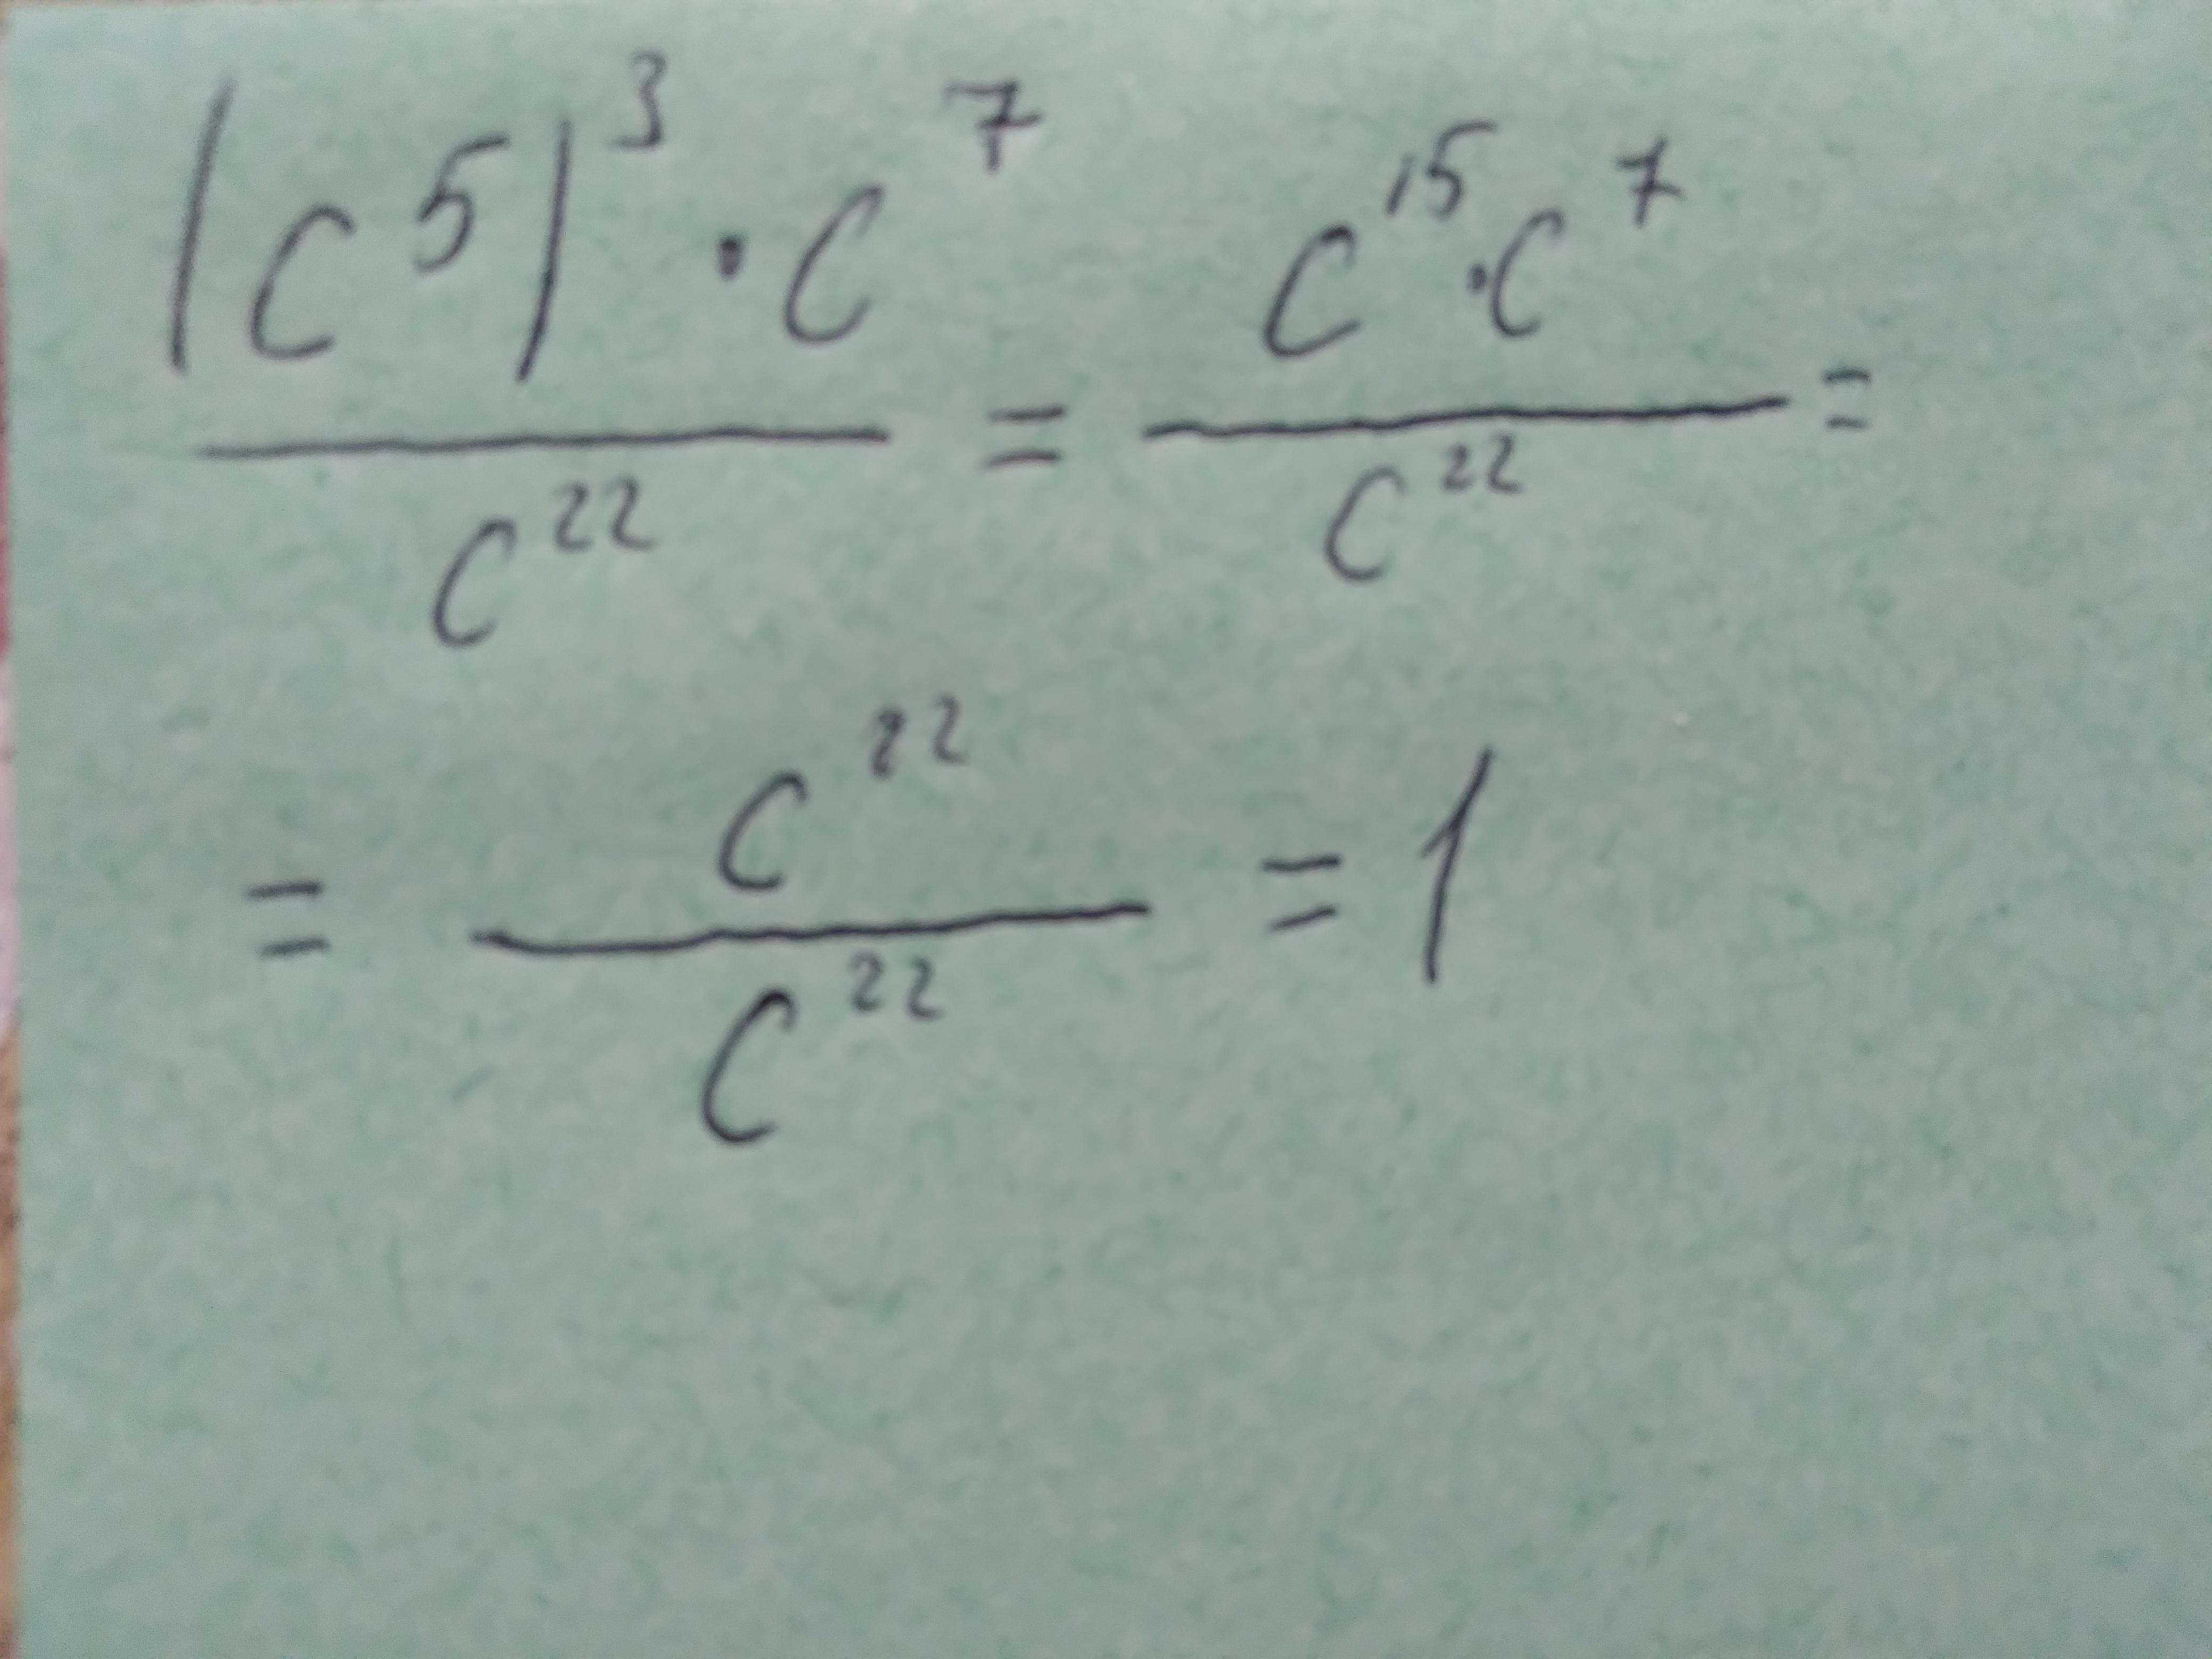 (c⁵)³ · c⁷ / c²² = c¹⁵ · c⁷ / c²² =
= c²² / c²² = 1